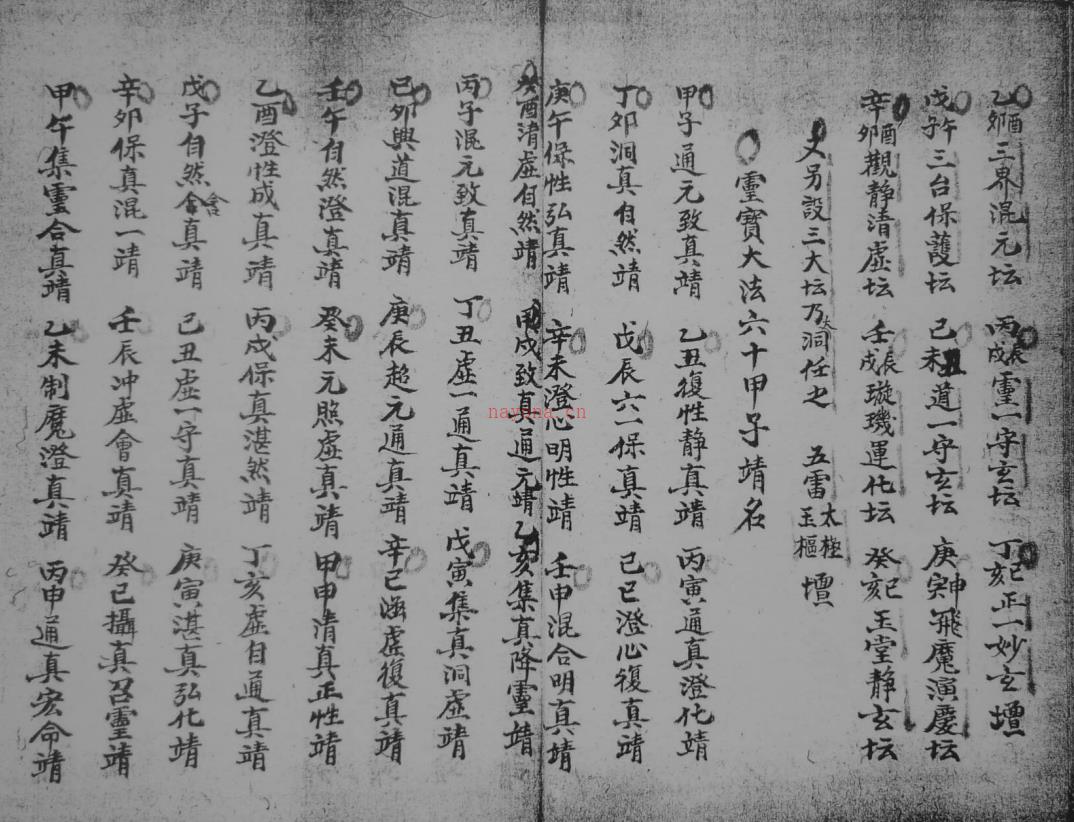 乙卯酉三界混元坛 丙戌辰靈一守玄坛 丁亥巳正一妙玄壇
戊子午三台保護坛 己未丑道一守玄坛 庚寅申飛魔演慶坛
辛卯酉觀静清虚坛 壬戌辰璇璣運化坛 癸亥巳玉堂静玄坛
又另設三大坛乃洞任之 五雷 玉樞 太極 壇
靈寶大法六十甲子靖名
甲子通元致真靖 乙丑復性静真靖 丙寅通真澄化靖
丁卯洞真自然靖 戊辰六一保真靖 己巳澄心復真靖
庚午保性弘真靖 辛未澄心明性靖 壬申混合明真靖
癸酉清虚自然靖 甲戌致真通元靖 乙亥集真降靈靖
丙子混元致真靖 丁丑虚一通真靖 戊寅集真洞虚靖
己卯與道混真靖 庚辰超元通真靖 辛巳涵虚復真靖
壬午自然澄真靖 癸未元照虚真靖 甲申清真正性靖
乙酉澄性成真靖 丙戌保真湛然靖 丁亥虚白通真靖
戊子自然含真靖 己丑虚一守真靖 庚寅湛真弘化靖
辛卯保真混一靖 壬辰冲虚會真靖 癸巳攝真召靈靖
甲午集靈合真靖 乙未制魔澄真靖 丙申通真宏命靖
nayona.cn